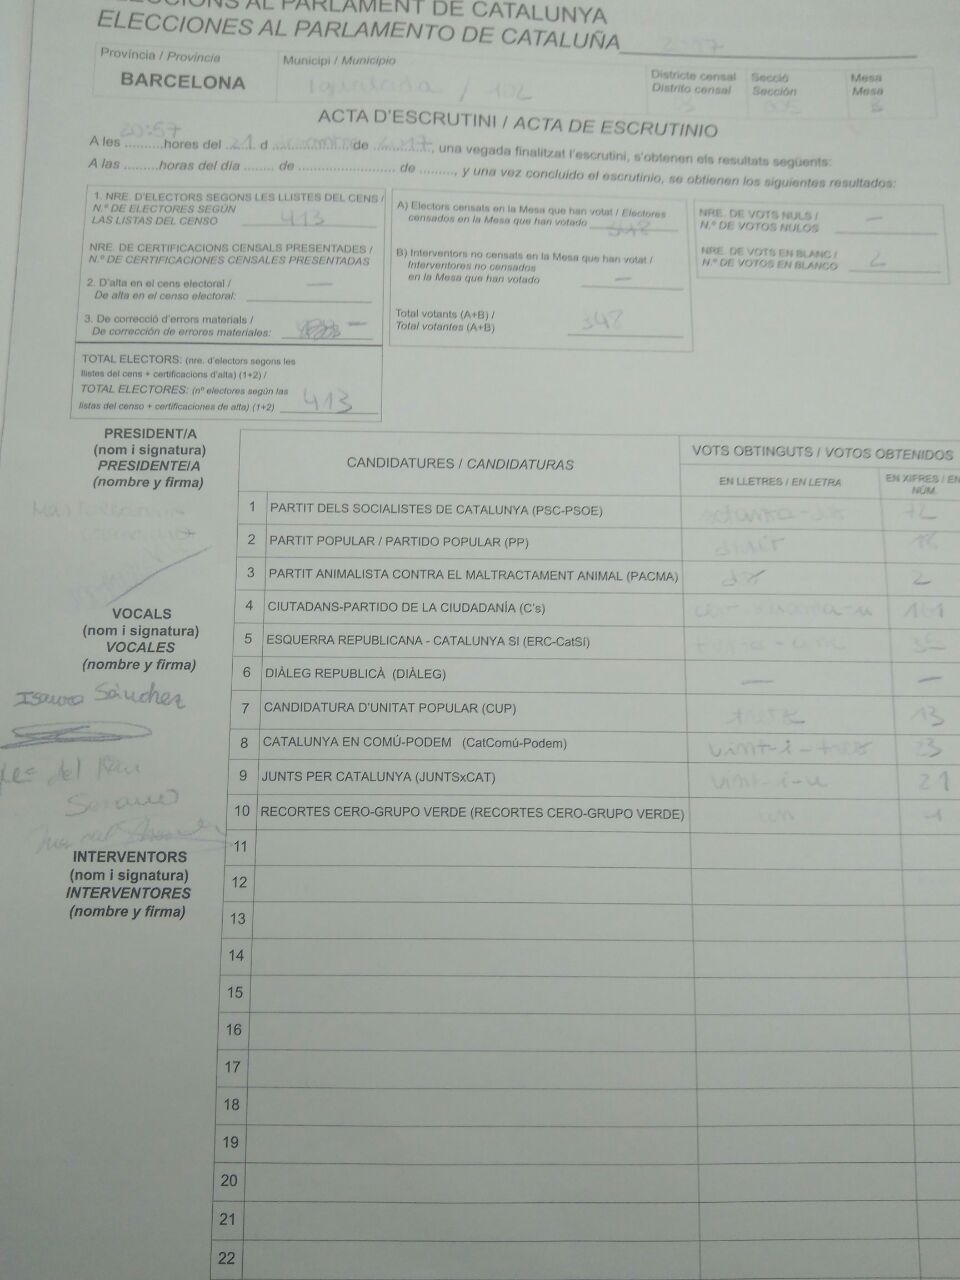 ELECCIONS AL PARLAMENT DE CATALUNYA
ELECCIONES AL PARLAMENTO DE CATALUÑA 2017
Província / Provincia
BARCELONA
Municipi / Municipio
Igualada / 102
Districte censal
Distrito censal
Secció
Sección
Mesa
Mesa
B
ACTA D'ESCRUTINI / ACTA DE ESCRUTINIO
20:57
A les ..........hores del 21 d de 2017, una vegada finalitzat l'escrutini, s'obtenen els resultats següents:
A las ..........horas del día ........ de ........................ de ........., y una vez concluido el escrutinio, se obtienen los siguientes resultados:
1. NRE. D'ELECTORS SEGONS LES LLISTES DEL CENS /
N.º DE ELECTORES SEGÚN
LAS LISTAS DEL CENSO 413
NRE. DE CERTIFICACIONS CENSALS PRESENTADES /
N.º DE CERTIFICACIONES CENSALES PRESENTADAS
2. D'alta en el cens electoral / —
De alta en el censo electoral:
3. De correcció d'errors materials /
De corrección de errores materiales: —
TOTAL ELECTORS: (nre. d'electors segons les
llistes del cens + certificacions d'alta) (1+2) /
TOTAL ELECTORES: (nº electores según las
listas del censo + certificaciones de alta) (1+2) 413
A) Electors censats en la Mesa que han votat / Electores
censados en la Mesa que han votado 348
B) Interventors no censats en la Mesa que han votat /
Interventores no censados
en la Mesa que han votado —
Total votants (A+B) /
Total votantes (A+B) 348
NRE. DE VOTS NULS /
N.º DE VOTOS NULOS —
NRE. DE VOTS EN BLANC /
N.º DE VOTOS EN BLANCO 2
PRESIDENT/A
(nom i signatura)
PRESIDENTE/A
(nombre y firma)
VOCALS
(nom i signatura)
VOCALES
(nombre y firma)
Isaura Sánchez
INTERVENTORS
(nom i signatura)
INTERVENTORES
(nombre y firma)
CANDIDATURES / CANDIDATURAS
VOTS OBTINGUTS / VOTOS OBTENIDOS
EN LLETRES / EN LETRA
EN XIFRES / EN
NÚM.
1 PARTIT DELS SOCIALISTES DE CATALUNYA (PSC-PSOE) setanta-dos 72
2 PARTIT POPULAR / PARTIDO POPULAR (PP) divuit 18
3 PARTIT ANIMALISTA CONTRA EL MALTRACTAMENT ANIMAL (PACMA) dos 2
4 CIUTADANS-PARTIDO DE LA CIUDADANÍA (C's) 161
5 ESQUERRA REPUBLICANA - CATALUNYA SI (ERC-CatSí) 35
6 DIÀLEG REPUBLICÀ (DIÀLEG) — —
7 CANDIDATURA D'UNITAT POPULAR (CUP) tretze 13
8 CATALUNYA EN COMÚ-PODEM (CatComú-Podem) vint-i-tres 23
9 JUNTS PER CATALUNYA (JUNTSxCAT) vint-i-u 21
10 RECORTES CERO-GRUPO VERDE (RECORTES CERO-GRUPO VERDE) un 1
11
12
13
14
15
16
17
18
19
20
21
22